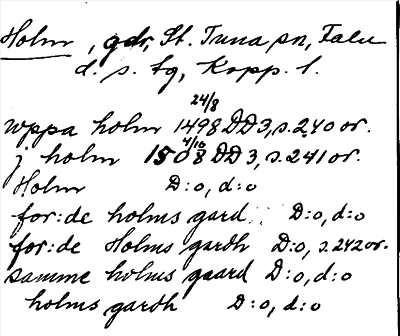 Holm, gdr, St. Tuna sn, Falu
d. s. tg, Kopp. l.
24/8
wppa holm 1498 DD3, s. 240 or.
4/10
j holm 1508 DD3, s. 241 or.
Holm D:o, d:o
for:de holms gard D:o, d:o
for:de Holms gardh D:o, s. 242 or.
samme holms gaard D:o, d:o
holms gardh D:o, d:o